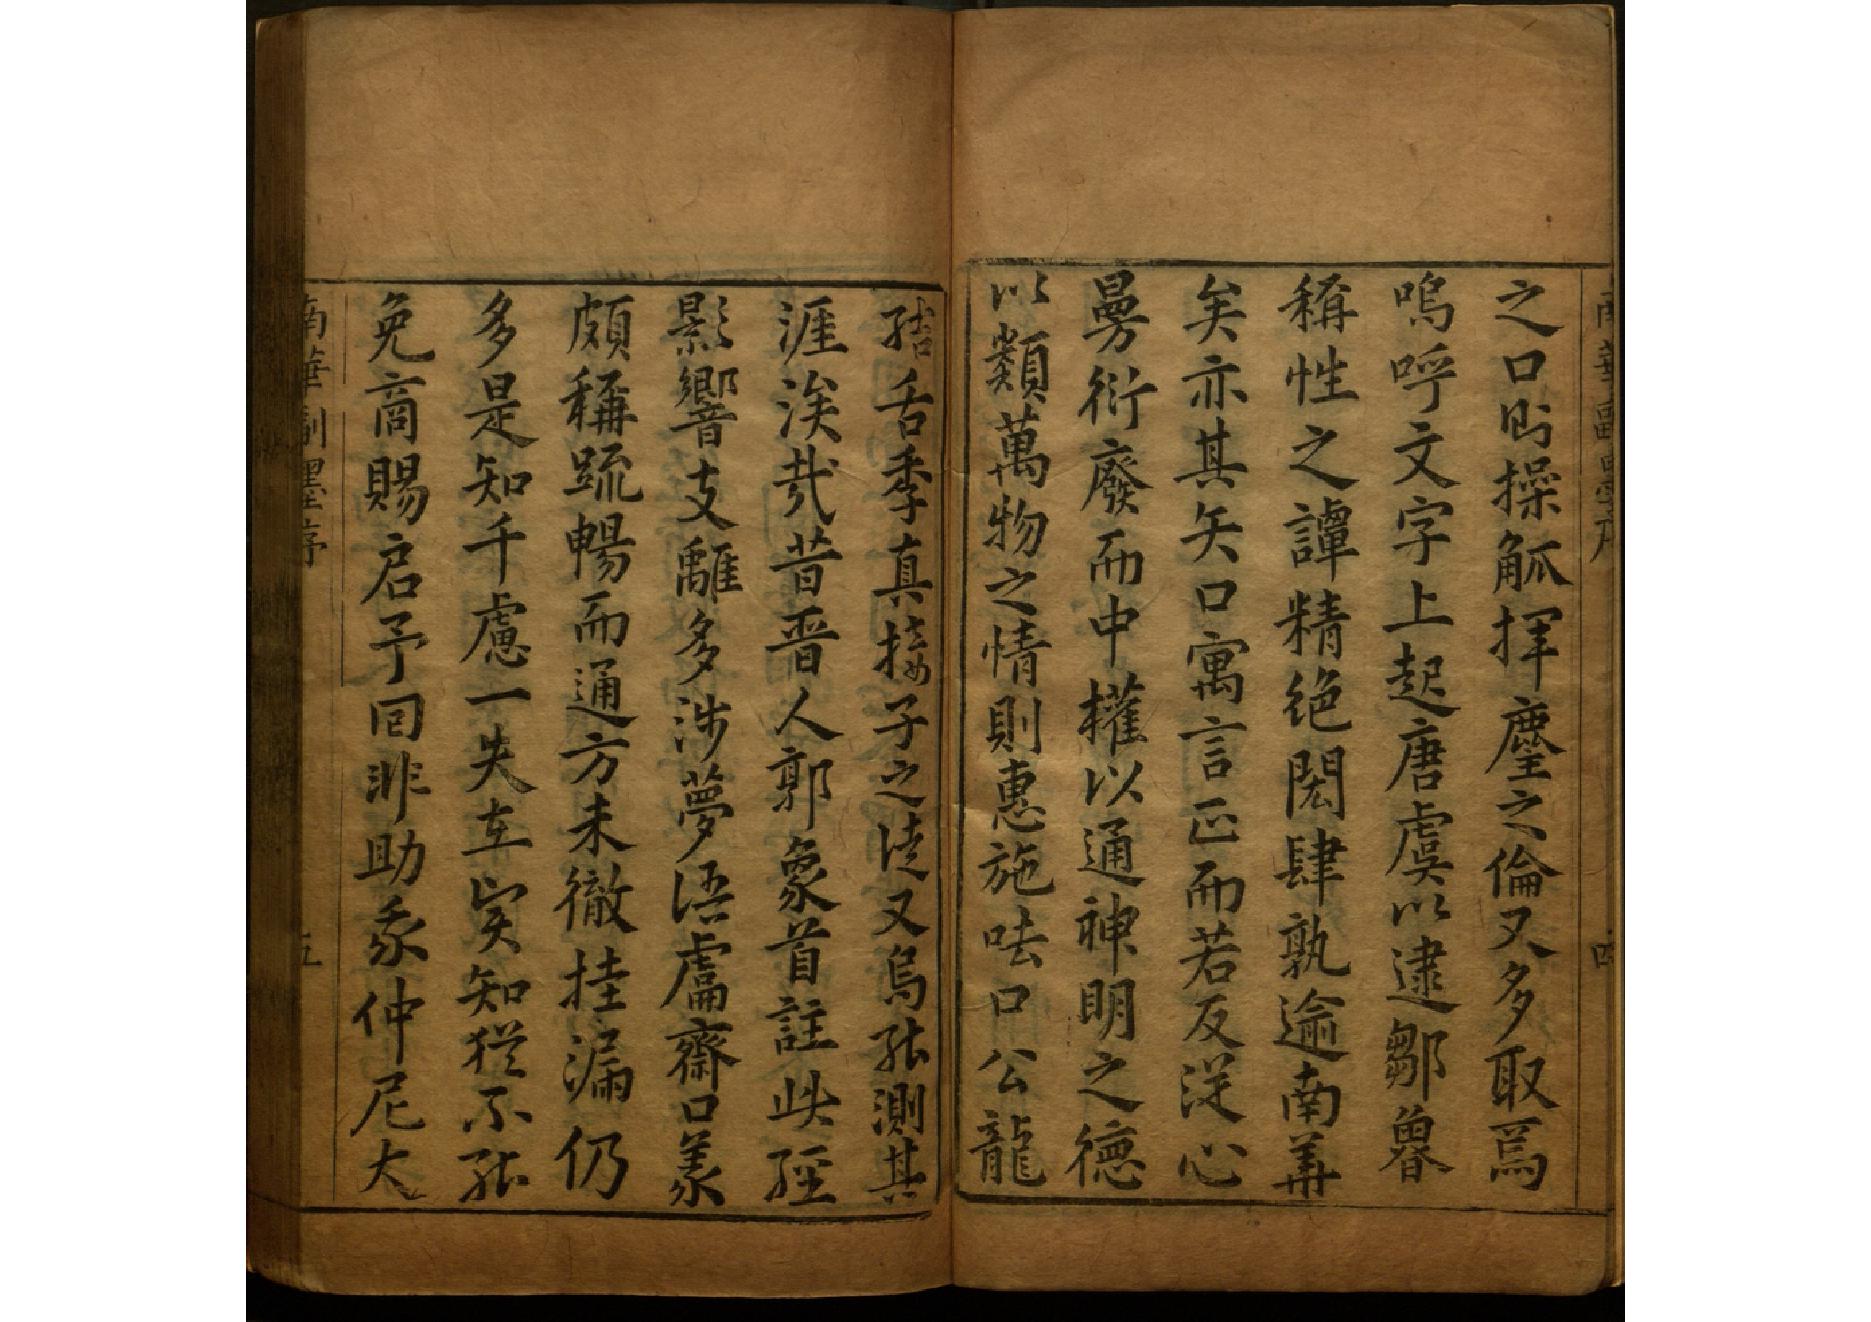 之口而操觚揮麈之倫又多取焉
嗚呼文字上起唐虞以逮鄒魯
稱性之譚精絶閎肆孰逾南華
矣亦其矢口寓言叵而若反從心
曼衍廢而中權以通神明之德
以類萬物之情則惠施呿口公龍
結舌季真接子之徒又烏能測其
涯涘哉昔晉人郭象首註此經
影響支離多涉夢語鬳齋口義
頗稱疏暢而通方未徹挂漏仍
多是知千慮一失在賢知猶不能
免商賜启予回非助我仲尼大
南華副墨序
四
南華副墨序
五